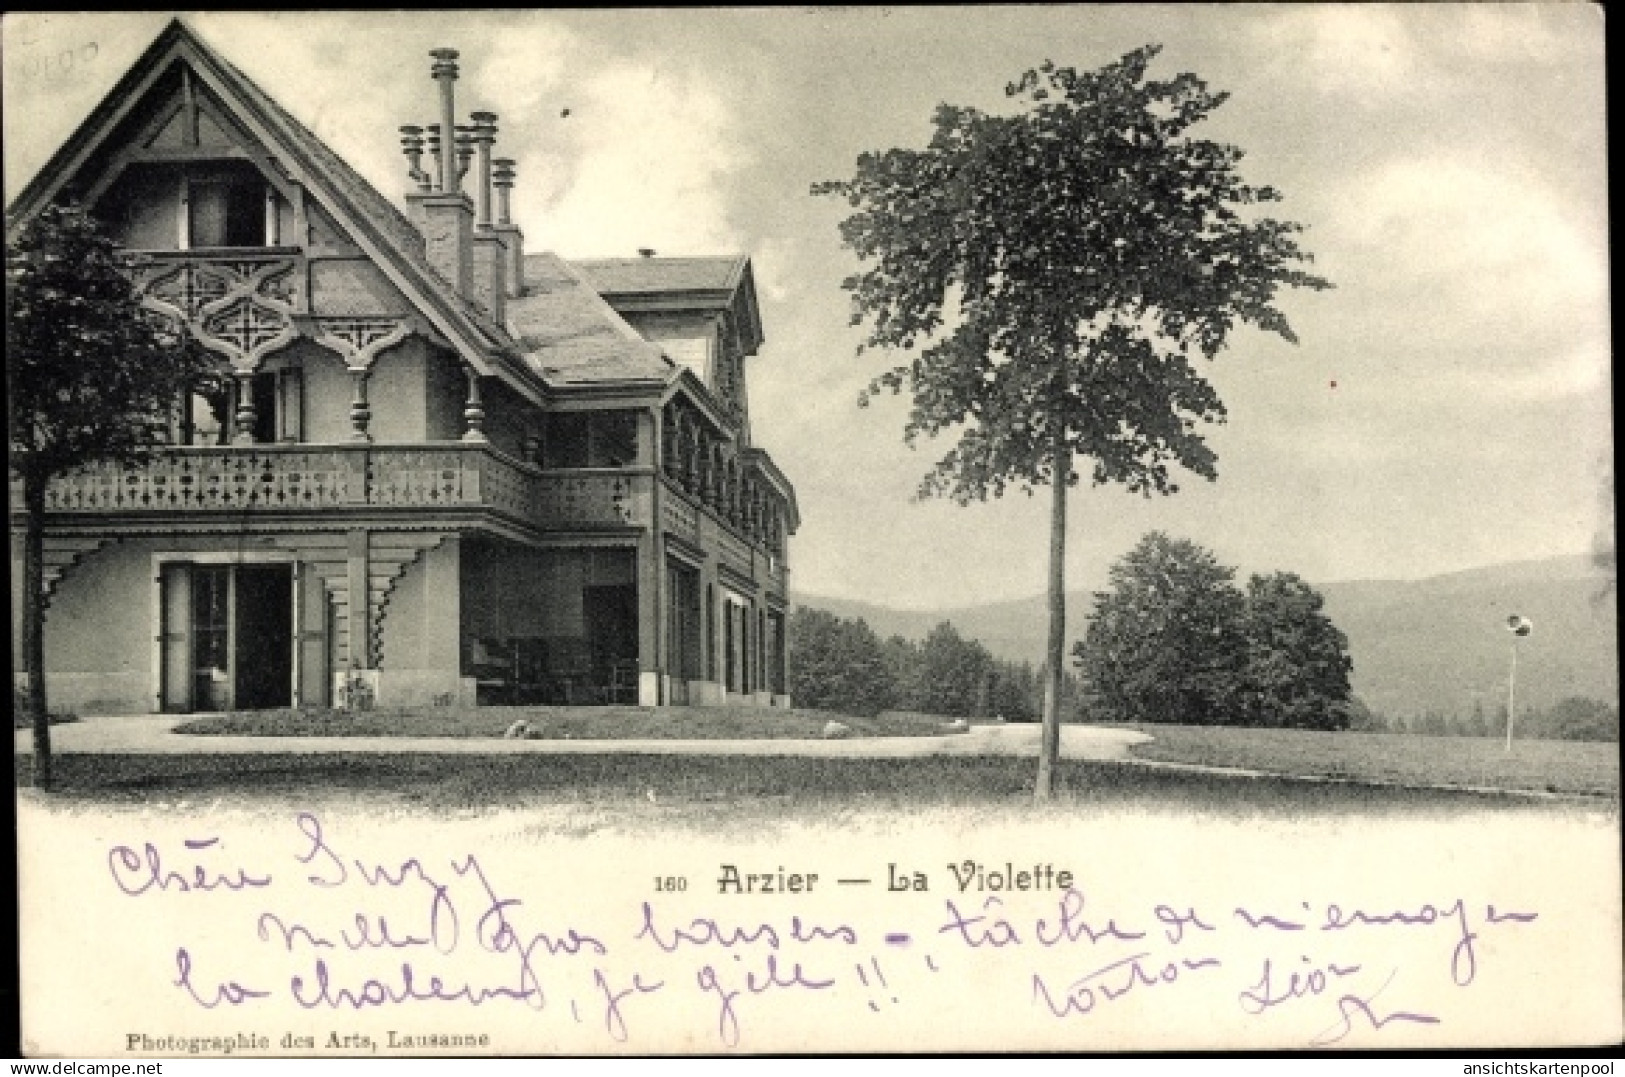 Chère Suzy
160 Arzier — La Violette
Mille gros baisers - tâche de m'envoyer
la chaleur, je gèle !!
tonton Léon
Photographie des Arts, Lausanne
delcampe.net
ansichtskartenpool